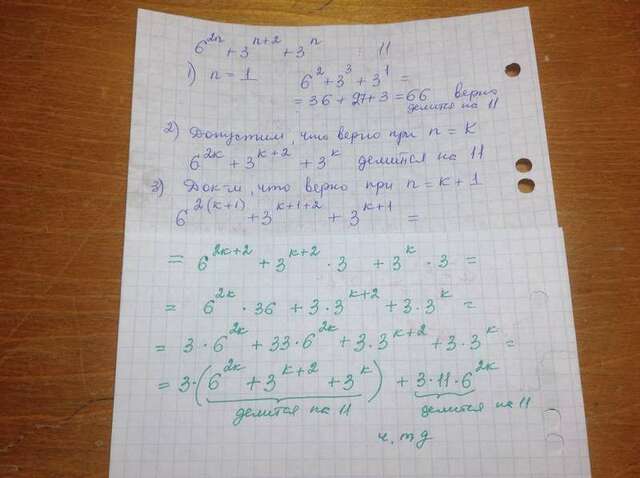 6^{2n} + 3^{n+2} + 3^n ⋮ 11
1) n = 1 6^2 + 3^3 + 3^1 =
= 36 + 27 + 3 = 66 верно
делится на 11
2) Допустим, что верно при n = K
6^{2k} + 3^{k+2} + 3^k делится на 11
3) Док-м, что верно при n = k + 1
6^{2(k+1)} + 3^{k+1+2} + 3^{k+1} =
= 6^{2k+2} + 3^{k+2} · 3 + 3^k · 3 =
= 6^{2k} · 36 + 3 · 3^{k+2} + 3 · 3^k =
= 3 · 6^{2k} + 33 · 6^{2k} + 3 · 3^{k+2} + 3 · 3^k =
= 3 · (6^{2k} + 3^{k+2} + 3^k) + 3 · 11 · 6^{2k}
делится на 11 делится на 11
ч, т д